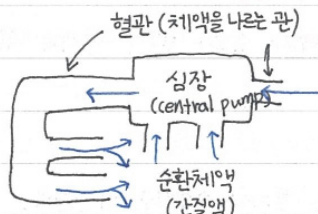 혈관 (체액을 나르는 관)
심장
(central pump)
순환체액
(간질액)